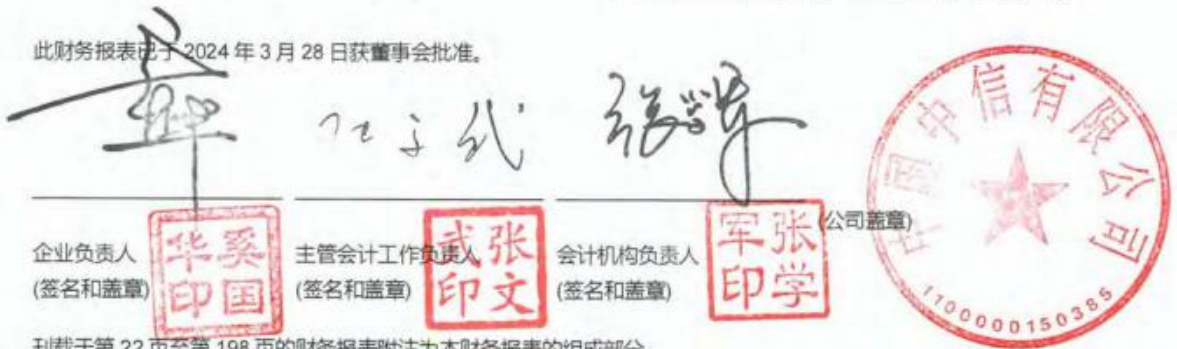 此财务报表已于 2024 年 3 月 28 日获董事会批准。
张文武
企业负责人
(签名和盖章)
奚国华印
主管会计工作负责人
(签名和盖章)
张文武印
会计机构负责人
(签名和盖章)
张学军印
(公司盖章)
中国中信有限公司
1100000150385
刊载于第 22 页至第 198 页的财务报表附注为本财务报表的组成部分